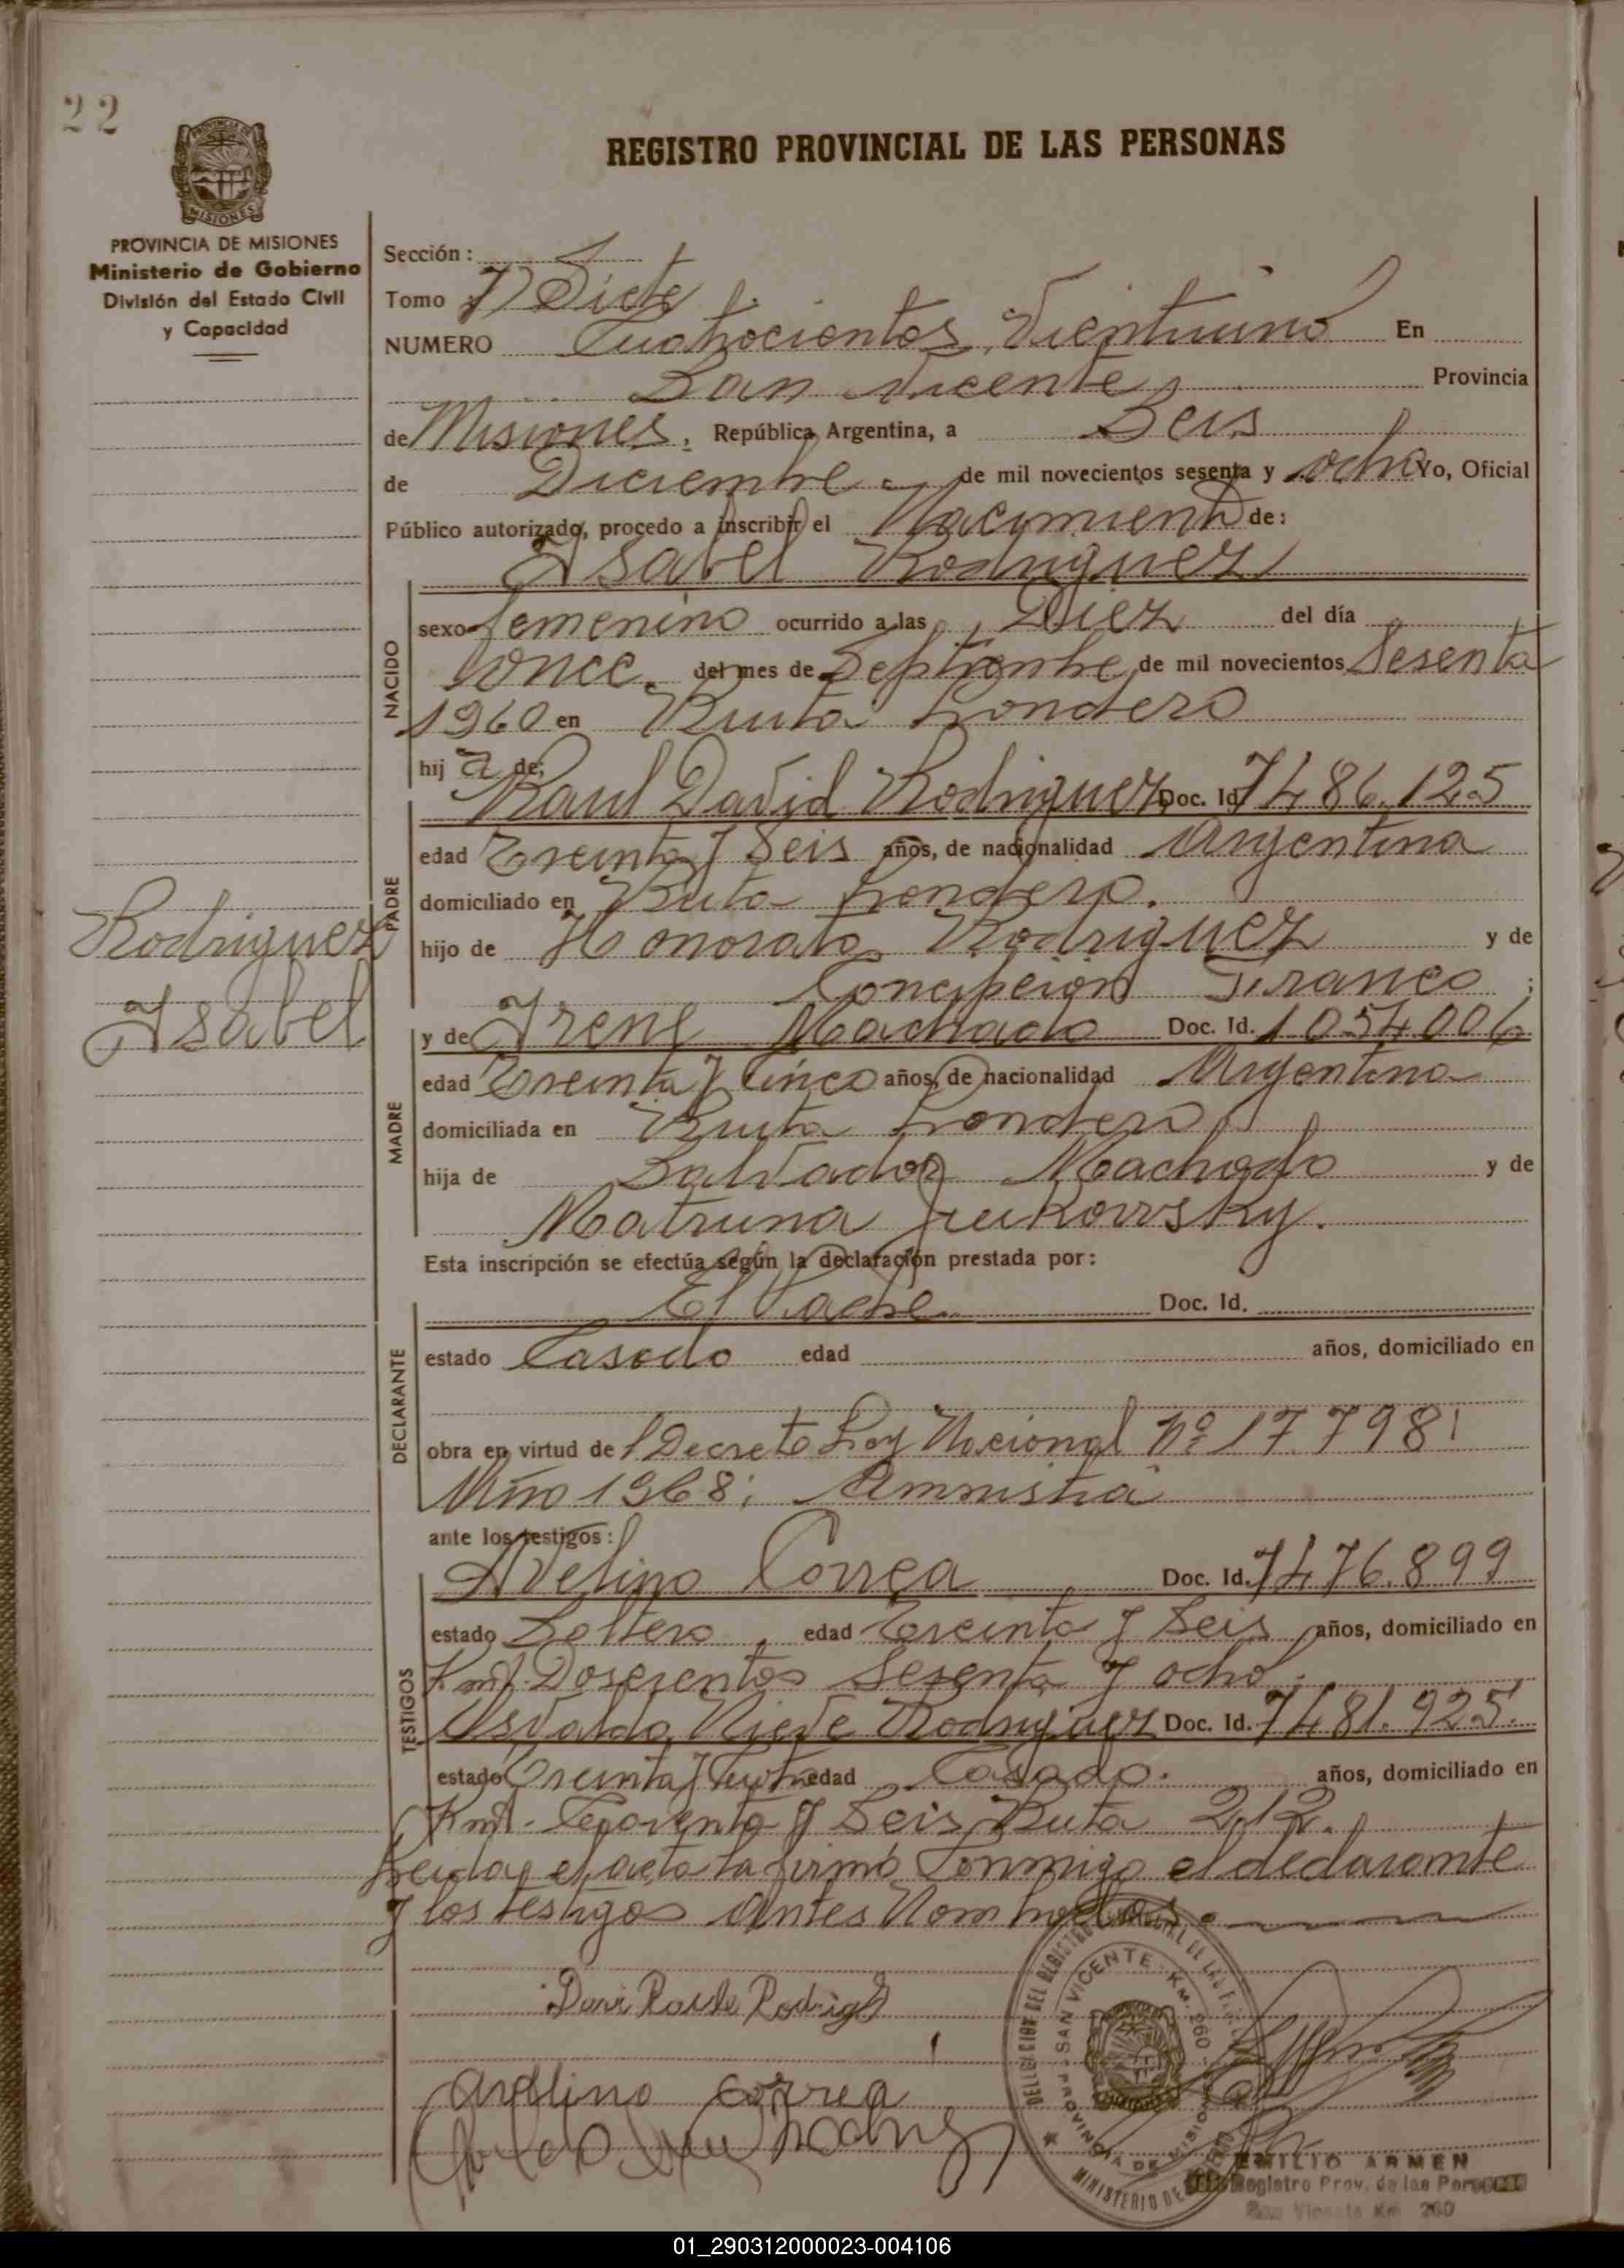 22
REGISTRO PROVINCIAL DE LAS PERSONAS
PROVINCIA DE MISIONES
MISIONES
PROVINCIA DE MISIONES
Ministerio de Gobierno
División del Estado Civil
y Capacidad
Sección:
Tomo 7 Siete
NUMERO Cuatrocientos Vientiuno En
San Vicente Provincia
de Misiones, República Argentina, a Seis
de Diciembre de mil novecientos sesenta y ocho Yo, Oficial
Público autorizado, procedo a inscribir el Nacimiento de:
Isabel Rodriguez
NACIDO
sexo femenino ocurrido a las Diez del día
once del mes de Septiembre de mil novecientos Sesenta
1960 en Ruta Londero
hij a de:
PADRE
Raul David Rodriguez Doc. Id. 7486.125
edad Treinta y Seis años, de nacionalidad Argentina
domiciliado en Ruta Londero.
hijo de Honorato Rodriguez y de
Concepcion Franco ;
Rodriguez
Isabel
MADRE
y de Irene Machado Doc. Id. 1054006
edad Treinta y Cinco años, de nacionalidad Argentina
domiciliada en Ruta Londero
hija de Salvador Machado y de
Matruna Jukowsky.
Esta inscripción se efectúa según la declaración prestada por:
DECLARANTE
El Padre Doc. Id.
estado Casado edad años, domiciliado en
obra en virtud de l Decreto Ley Nacional Nº 17.798
Año 1968; Amnistia
ante los testigos:
TESTIGOS
Avelino Correa Doc. Id. 7476.899
estado Soltero, edad Treinta y Seis años, domiciliado en
Kmt. Doscientos Sesenta y ocho.
Osvaldo Rieve Rodriguez Doc. Id. 7481.925.
estado Treinta y edad Casado. años, domiciliado en
Kmt. y Seis Ruta 212.
Leida el acta la firmó Conmigo el declarante
y los testigos Antes Nombrados.
Rodrig
Avelino Correa
DELEGACION DEL REGISTRO PROVINCIAL DE LAS
SAN VICENTE - KM. 260
PROVINCIA DE MISIONES
MINISTERIO DE
EMILIO ARMEN
Registro Prov. de las Personas
San Vicente Km 260
01_290312000023-004106